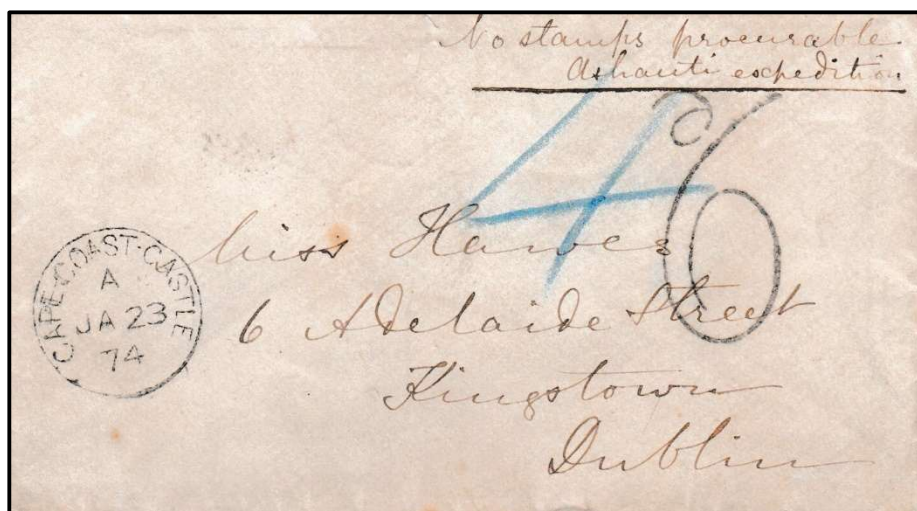 No stamps procurable
Ashanti expedition
4
6
CAPE-COAST-CASTLE
A
JA 23
74
Miss Hawes
6 Adelaide Street
Kingstown
Dublin